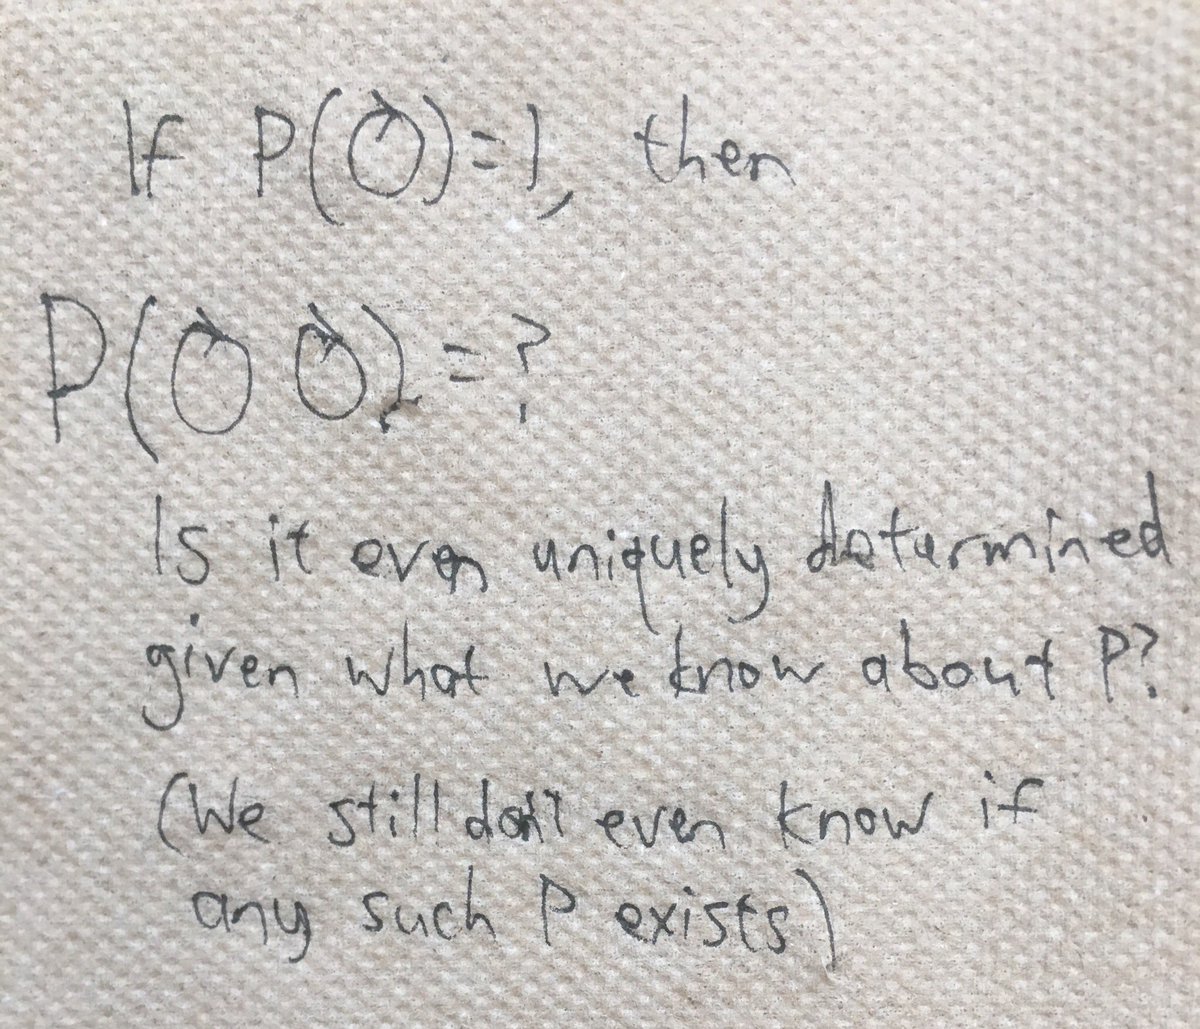 If P(↻)=1, then
P(↻ ↻) = ?
Is it even uniquely determined
given what we know about P?
(We still don't even know if
any such P exists)